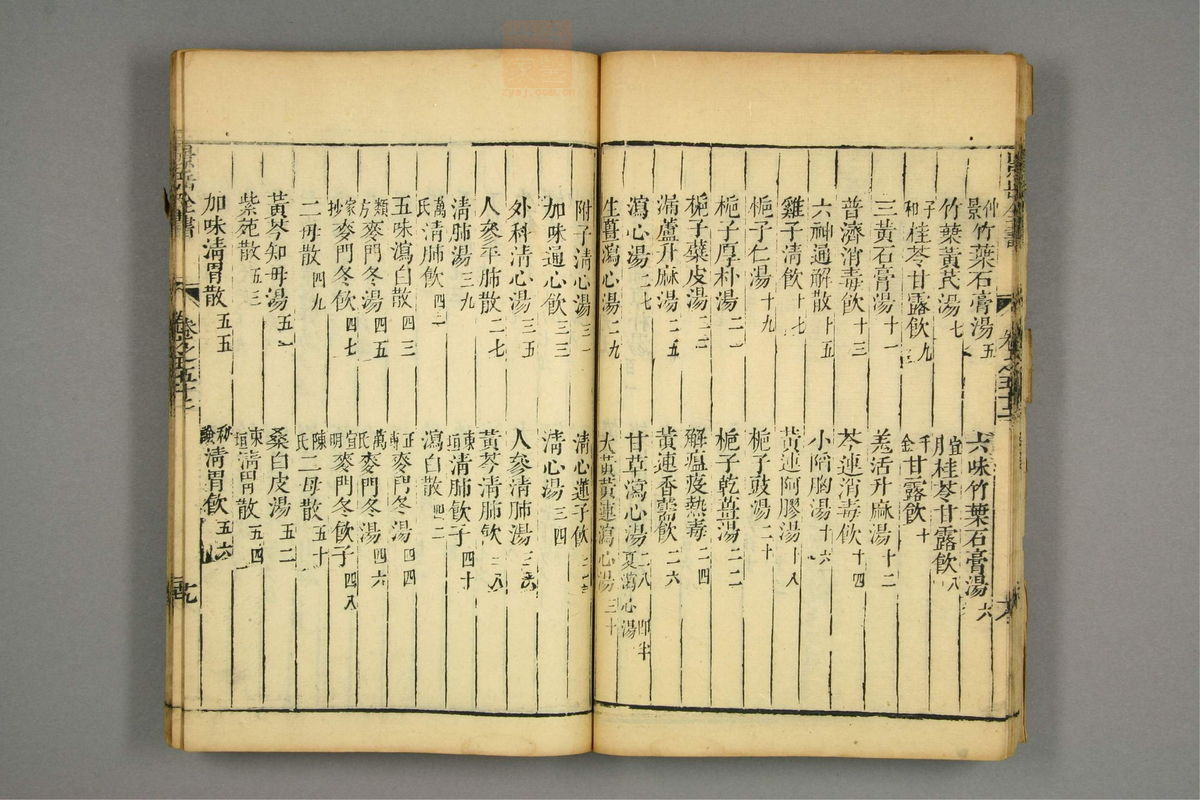 仲景竹葉石膏湯五 六味竹葉石膏湯六
竹葉黃芪湯七 宜明桂苓甘露飲八
子和桂苓甘露飲九 千金甘露飲十
三黃石膏湯十一 羌活升麻湯十二
普濟消毒飲十三 芩連消毒飲十四
六神通解散十五 小陷胸湯十六
雞子清飲十七 黃連阿膠湯十八
梔子仁湯十九 梔子豉湯二十
梔子厚朴湯二一 梔子乾薑湯二二
梔子蘗皮湯二三 解瘟疫熱毒二四
漏蘆升麻湯二五 黃連香薷飲二六
瀉心湯二七 甘草瀉心湯二八即半夏瀉心湯
生薑瀉心湯二九 大黃黃連瀉心湯三十
附子清心湯三一 清心蓮子飲三二
加味通心飲三三 清心湯三四
外科清心湯三五 人參清肺湯三六
人參平肺散二七 黃芩清肺飲三八
清肺湯三九 東垣清肺飲子四十
萬氏清肺飲四一 瀉白散四二
五味瀉白散四三 正傳麥門冬湯四四
類方麥門冬湯四五 萬氏麥門冬湯四六
家抄麥門冬飲四七 宜明麥門冬飲子四八
二母散四九 陳氏二母散五十
黃芩知母湯五一 桑白皮湯五二
紫菀散五三 東垣清胃散五四
加味清胃散五五 秘驗清胃飲五六
景岳全書 卷之五十七 十九